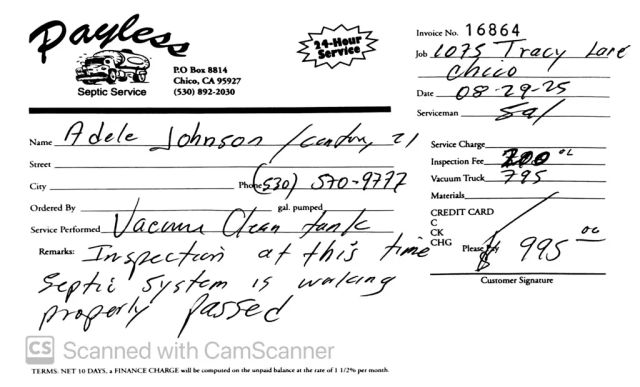 Payless
Septic Service
P.O Box 8814
Chico, CA 95927
(530) 892-2030
24-Hour
Service
Invoice No. 16864
Job 1075 Tracy Lane
Chico
Date 08-29-25
Serviceman Sal
Name Adele Johnson / Century 21
Street
City Phone (530) 570-9777
Ordered By gal. pumped
Service Performed Vacuum Clean tank
Remarks: Inspection at this time
Septic System is working
properly Passed
Service Charge
Inspection Fee 200
Vacuum Truck 795
Materials
CREDIT CARD
C
CK
CHG Please Pay $ 995 00
Customer Signature
CS Scanned with CamScanner
TERMS: NET 10 DAYS, a FINANCE CHARGE will be computed on the unpaid balance at the rate of 1 1/2% per month.